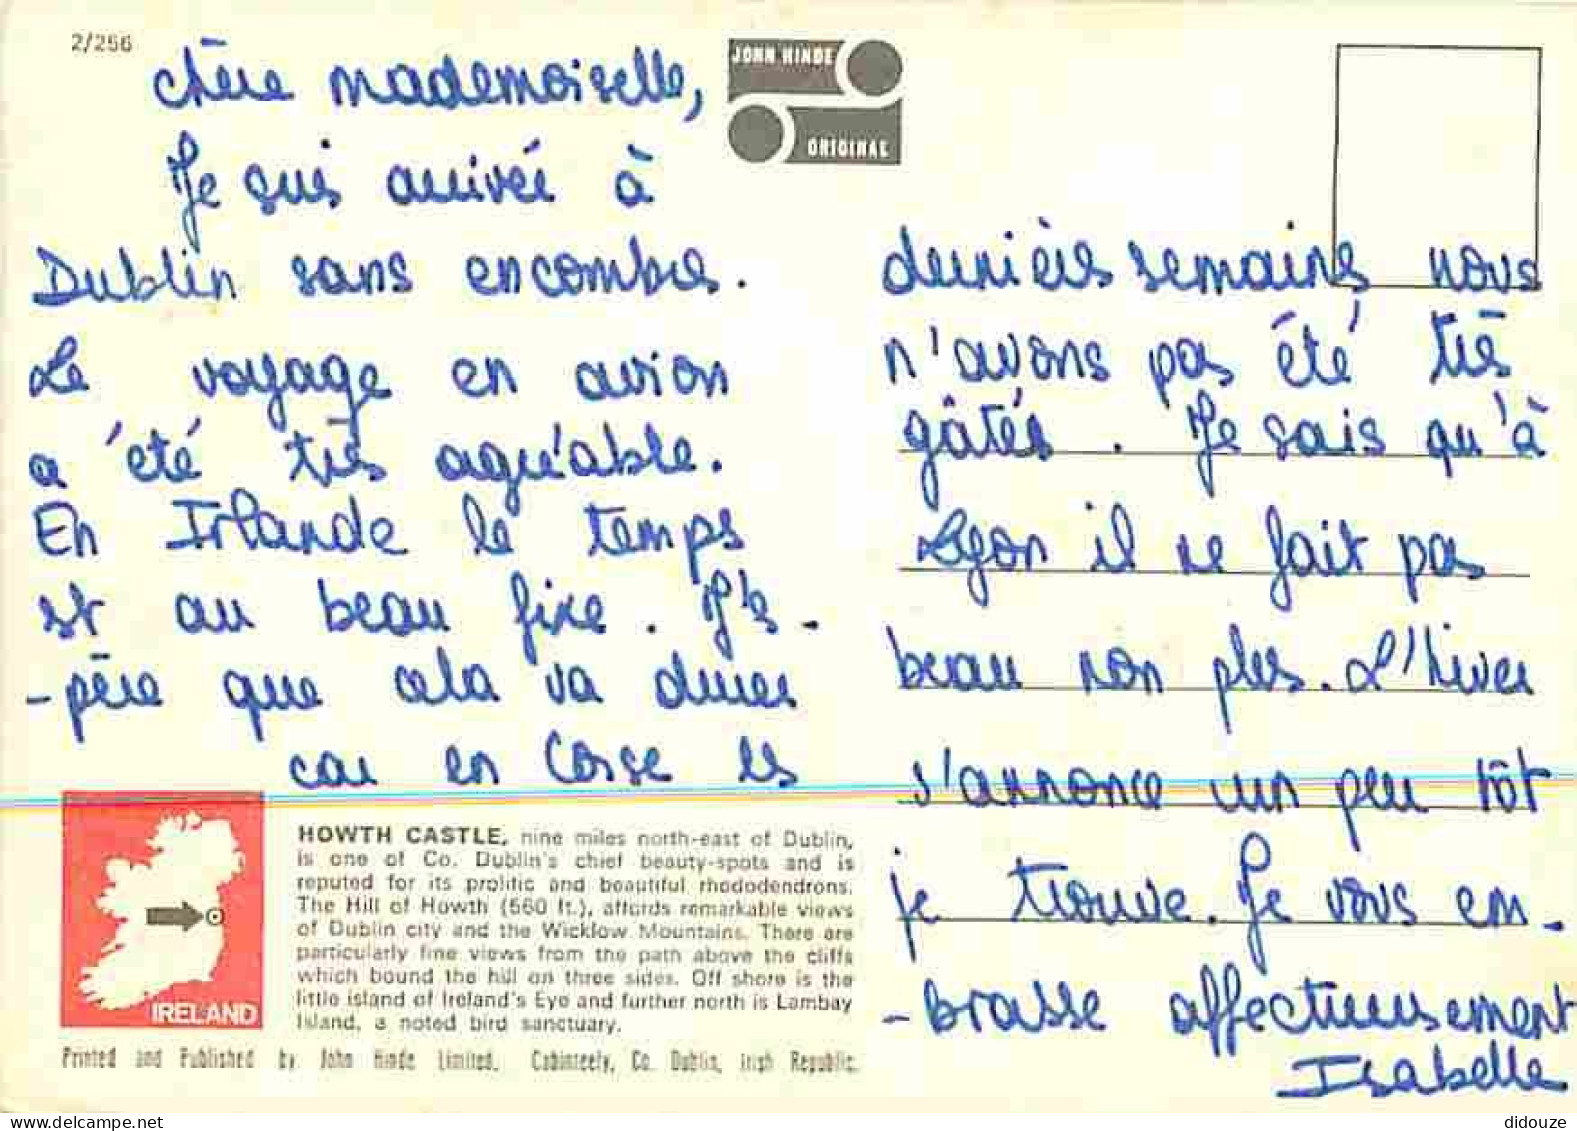 2/256
JOHN HINDE
ORIGINAL
chère mademoiselle,
Je suis arrivée à
Dublin sans encombres.
Le voyage en avion
a été très agréable.
En Irlande le temps
est au beau fixe. J'es-
-père que cela va durer
car en Corse les
dernières semaines nous
n'avons pas été très
gâtés. Je sais qu'à
Lyon il ne fait pas
beau non plus. L'hiver
s'annonce un peu tôt
je trouve. Je vous em-
-brasse affectueusement
Isabelle
IRELAND
HOWTH CASTLE, nine miles north-east of Dublin,
is one of Co. Dublin's chief beauty-spots and is
reputed for its prolific and beautiful rhododendrons.
The Hill of Howth (560 ft.), affords remarkable views
of Dublin city and the Wicklow Mountains. There are
particularly fine views from the path above the cliffs
which bound the hill on three sides. Off shore is the
little island of Ireland's Eye and further north is Lambay
Island, a noted bird sanctuary.
Printed and Published by John Hinde Limited, Cabinteely, Co. Dublin, Irish Republic.
didouze